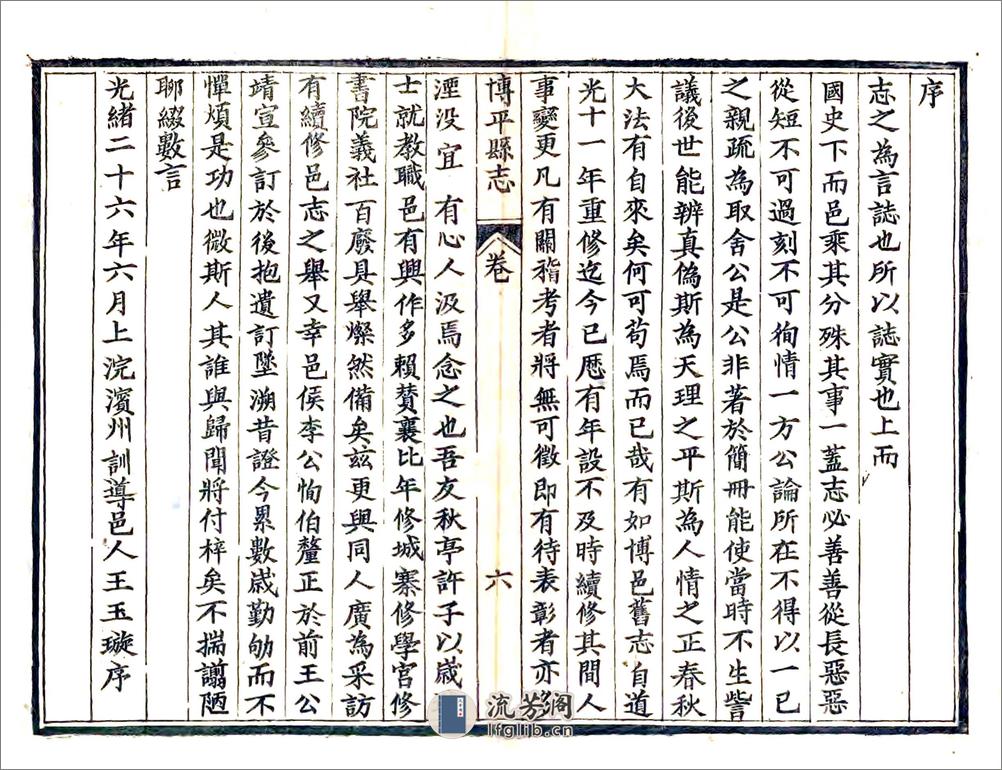 序
志之為言誌也所以誌實也上而
國史下而邑乘其分殊其事一蓋志必善善從長惡惡
從短不可過刻不可徇情一方公論所在不得以一已
之親疏為取舍公是公非著於簡冊能使當時不生訾
議後世能辨真偽斯為天理之平斯為人情之正春秋
大法有自來矣何可苟焉而已哉有如博邑舊志自道
光十一年重修迄今已歷有年設不及時續修其間人
事變更凡有關稽考者將無可徵即有待表彰者亦多
博平縣志 卷 六
湮没宜 有心人汲焉念之也吾友秋亭許子以歲
士就教職邑有興作多賴贊襄比年修城寨修學宮修
書院義社百廢具舉燦然備矣茲更與同人廣為采訪
有續修邑志之舉又幸邑侯李公恂伯釐正於前王公
靖宣參訂於後抱遺訂墜溯昔證今累數歲勤劬而不
憚煩是功也微斯人其誰與歸聞將付梓矣不揣謭陋
聊綴數言
光緒二十六年六月上浣濱州訓導邑人王玉璇序
流芳阁
lfglib.cn